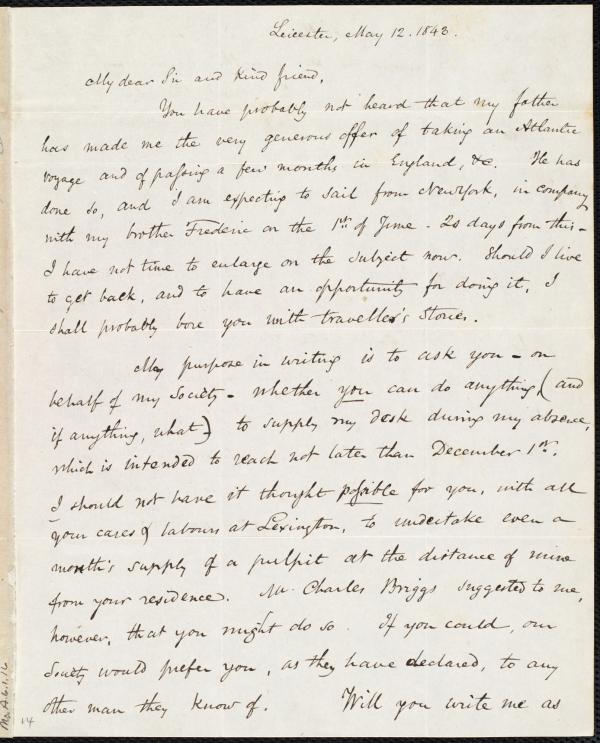 Leicester, May 12. 1843.
My dear Sir and kind friend,
You have probably not heard that my father
has made me the very generous offer of taking an Atlantic
voyage and of passing a few months in England, &c. He has
done so, and I am expecting to sail from New York, in company
with my brother Frederic on the 1st of June - 20 days from this -
I have not time to enlarge on the subject now. Should I live
to get back, and to have an opportunity for doing it, I
shall probably bore you with traveller's stories.
My purpose in writing is to ask you - on
behalf of my Society - whether you can do anything, (and
if anything, what) to supply my desk during my absence,
which is intended to reach not later than December 1st.
I should not have it thought possible for you, with all
your cares & labours at Lexington, to undertake even a
month's supply of a pulpit at the distance of mine
from your residence. Mr. Charles Briggs suggested to me,
however, that you might do so. If you could, our
Society would prefer you, as they have declared, to any
other man they know of. Will you write me as
Ms. A.6.1.16
14